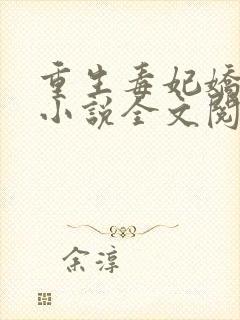 重生毒妃嬌
小說全文閱
余淳